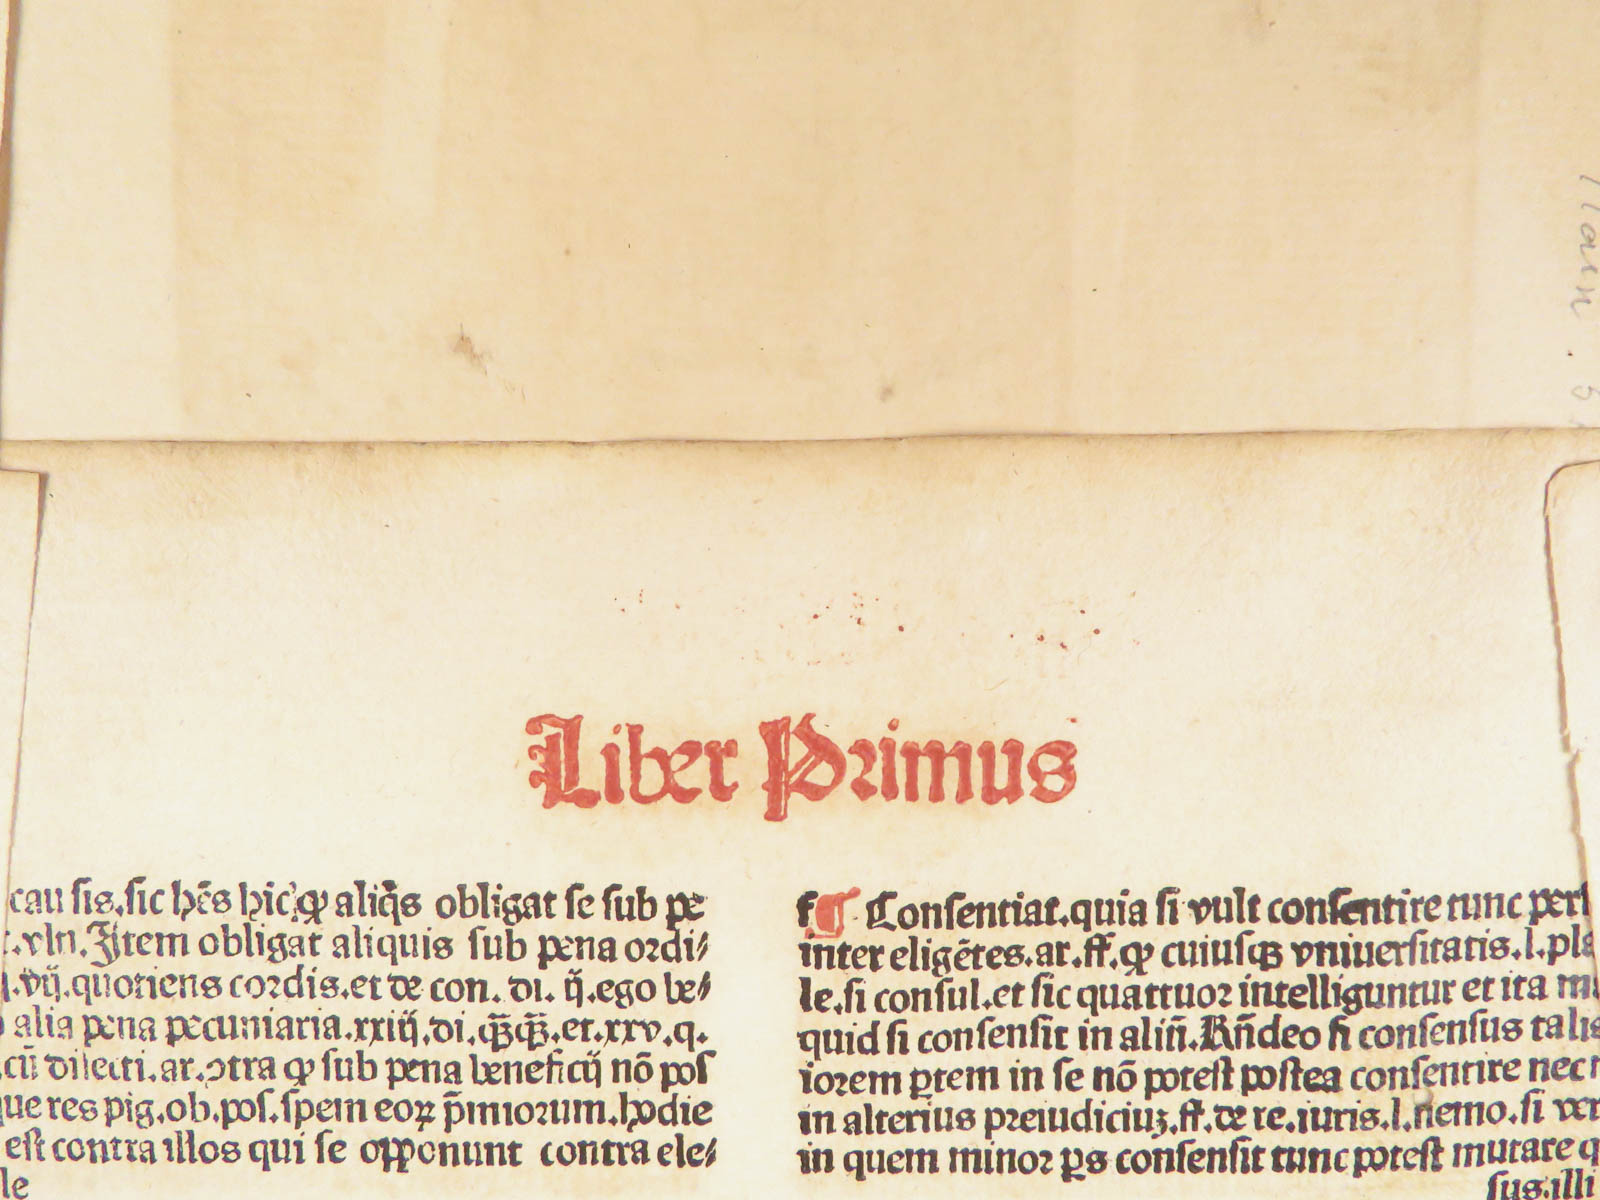 Liber Primus
causis.sic hẽs hic.ꝙ aliq̃s obligat se sub pe
.vln. Item obligat aliquis sub pena ordi⸗
q.vij.quotiens cordis.et de con. di. ij.ego be⸗
alia pena pecuniaria.xxiiij.di.q̃q̃.et.xxv.q.
.cũ dilecti.ar.ↄtra ꝙ sub pena beneficij nõ pos
que res pig.ob.pos.spem eoꝝ p̃miorum.hodie
est contra illos qui se opponunt contra ele⸗
le
f ¶ Consentiat.quia si vult consentire tunc per
inter eligẽtes.ar.ff.ꝙ cuiusqꝫ vniuersitatis.l.pla
le.si consul.et sic quattuor intelliguntur et ita
quid si consensit in aliũ.Rñdeo si consensus talis
iorem ꝑtem in se nõ potest postea consentire nec
in alterius preiudiciuꝫ.ff.de re.iuris.l.nemo.si ver
in quem minor ꝑs consensit tunc potest mutare q
sus.illi